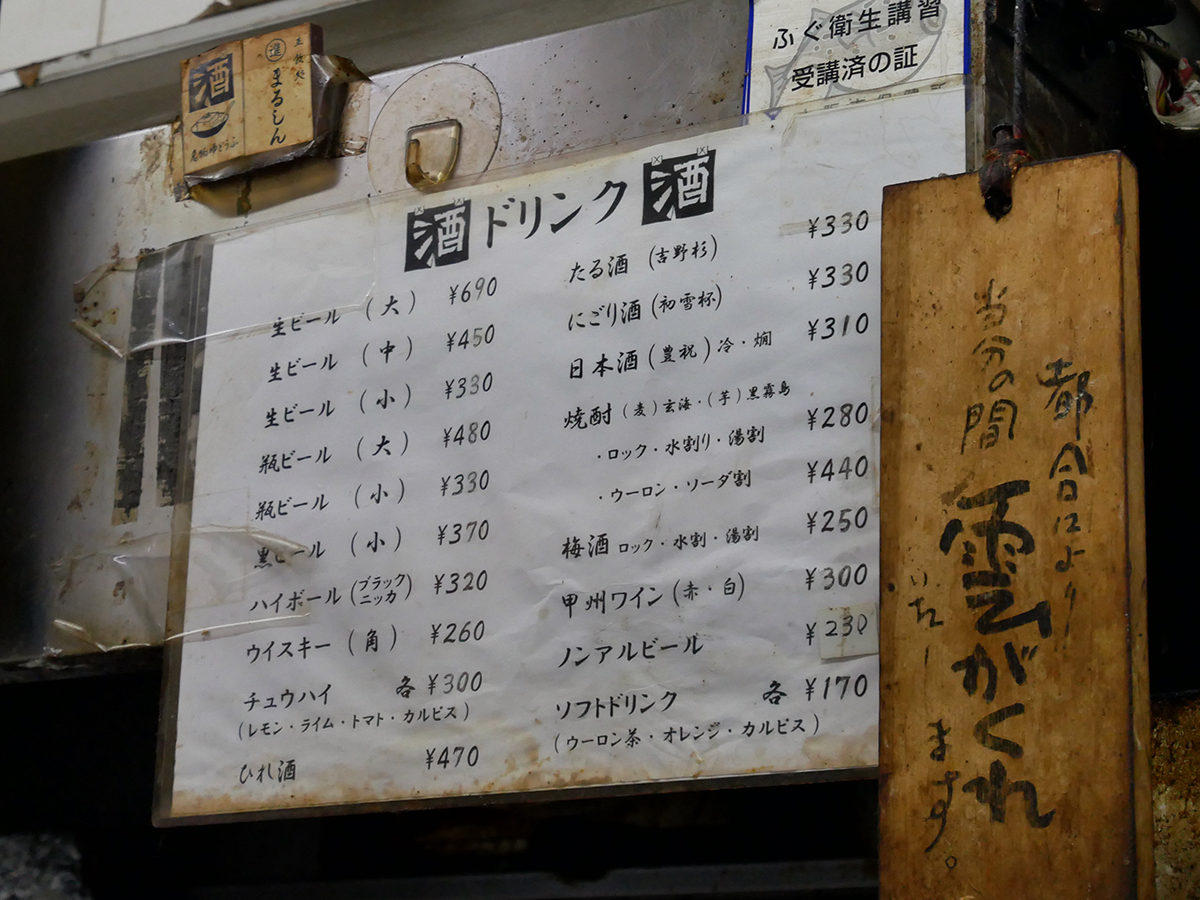 ふぐ衛生講習
受講済の証
酒
進
まるしん
酒 ドリンク 酒
生ビール (大) ¥690
生ビール (中) ¥450
生ビール (小) ¥330
瓶ビール (大) ¥480
瓶ビール (小) ¥330
黒ビール (小) ¥370
ハイボール (ブラックニッカ) ¥320
ウイスキー (角) ¥260
チュウハイ 各 ¥300
(レモン・ライム・トマト・カルピス)
ひれ酒 ¥470
たる酒 (吉野杉) ¥330
にごり酒 (初雪杯) ¥330
日本酒 (豊祝) 冷・燗 ¥310
焼酎 (麦) 玄海・(芋) 黒霧島
・ロック・水割り・湯割 ¥280
・ウーロン・ソーダ割 ¥440
梅酒 ロック・水割・湯割 ¥250
甲州ワイン (赤・白) ¥300
ノンアルビール ¥230
ソフトドリンク 各 ¥170
(ウーロン茶・オレンジ・カルピス)
都合により
当分の間
雲がくれ
いたします。